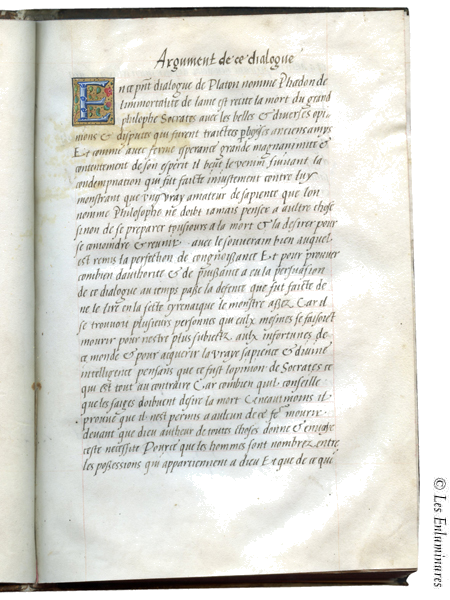 Argument de ce dialogue
En ce pnt dialogue de Platon nomme Phadon de
limmortalite de lame est recite la mort du grand
philophe Socrates avec les belles & diverses opi
nions & disputes qui furent traictees
Et comme avec ferme esperance grande magnanimite &
contentement de son esperit il beut le venim suivant la
condempnation qui fut faicte iniustement contre luy
monstrant que ung vray amateur de sapience que lon
nomme Philosophe ne doibt iamais penser a aultre chose
sinon de se preparer tousiours a la mort & la desirer pour
se conioindre & reunir avec le souverain bien auquel
est remis la perfection de congnoissance Et pour prouver
combien dauthorite & de puissance a eu la persuasion
de ce dialogue au temps passe la defence que fut faicte de
ne le lire en la secte cyrenaique le monstre assez Car il
se trouvoit plusieurs personnes que eulx mesmes se faisoient
mourir pour nestre plus subiectz aulx infortunes de
ce monde & pour acquerir la vraye sapience & divine
intelligence pensans que ce fust lopinion de Socrates ce
qui est tout au contraire Car combien quil conseille
que les saiges doibvent desire la mort Neantmoins il
prouve que il nest permis a aulcun de ce fe mourir
devant que dieu autheur de toutes choses donne & envoye
ceste necessite Pource que les hommes sont nombrez entre
les possessions qui appartiennent a dieu Et que de ce qui
© Les Enluminures